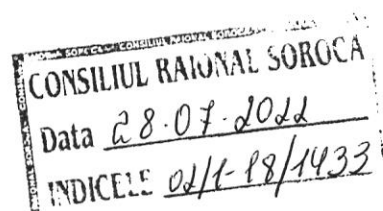 CONSILIUL RAIONAL SOROCA
Data 28.07.2022
INDICELE 02/1-18/1433